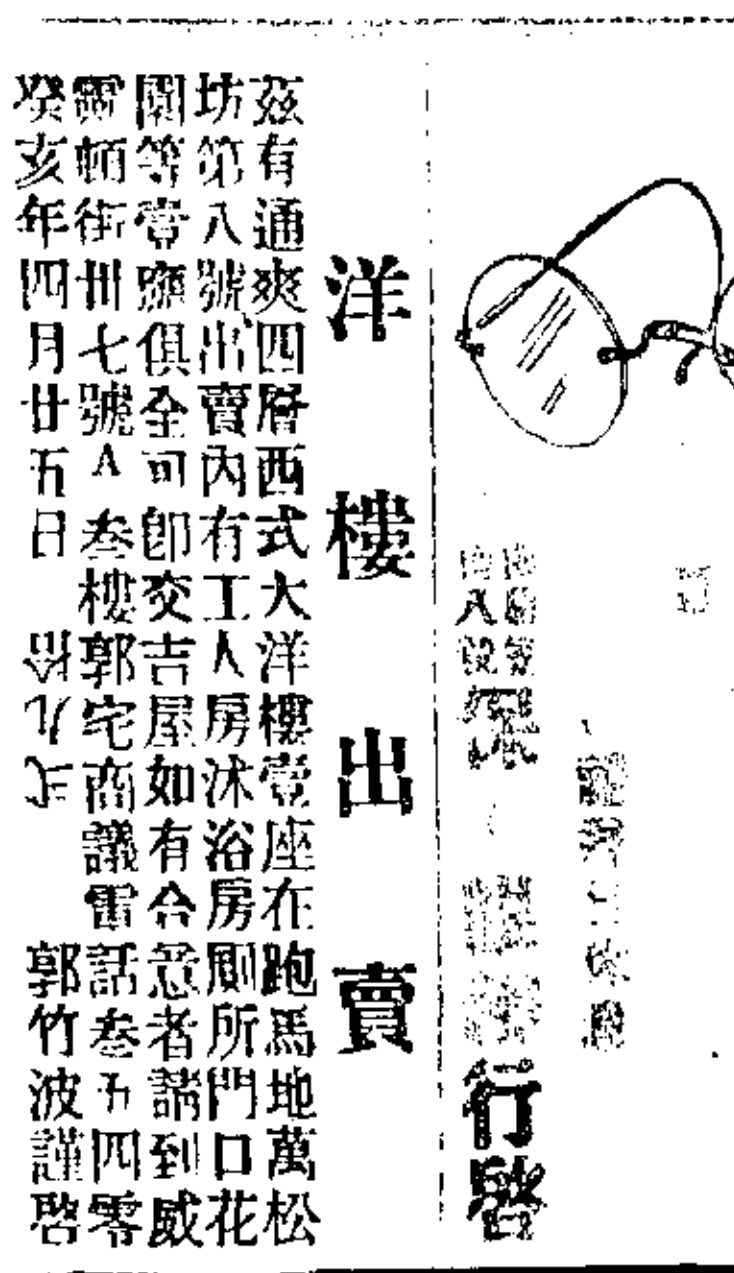 行啓
洋樓出賣
茲有通爽四層西式大洋樓壹座在跑馬地萬松
坊第八號出賣內有工人房沐浴房厠所門口花
園等壹應俱全可即交吉屋如有合意者請到威
靈頓街卅七號A叁樓郭宅商議電話叁五四零
癸亥年四月廿五日 郭竹波謹啓